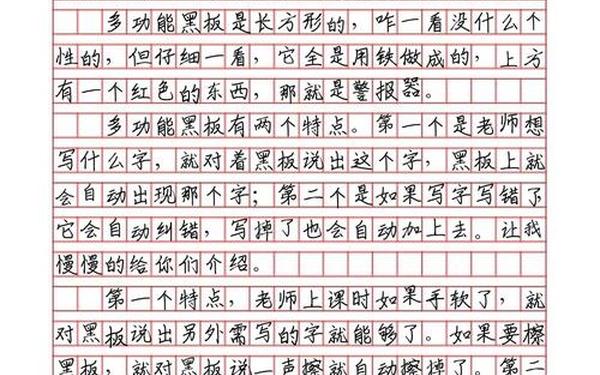 多功能黑板是长方形的，咋一看没什么个
性的，但仔细一看，它全是用铁做成的，上方
有一个红色的东西，那就是警报器。
多功能黑板有两个特点。第一个是老师想
写什么字，就对着黑板说出这个字，黑板上就
会自动出现那个字；第二个是如果写字写错了
它会自动纠错，写掉了也会自动加上去。让我
慢慢的给你们介绍。
第一个特点，老师上课时如果手软了，就
对黑板说出另外需写的字就能够了。如果要檫
黑板，就对黑板说一声檫就自动檫掉了。第二